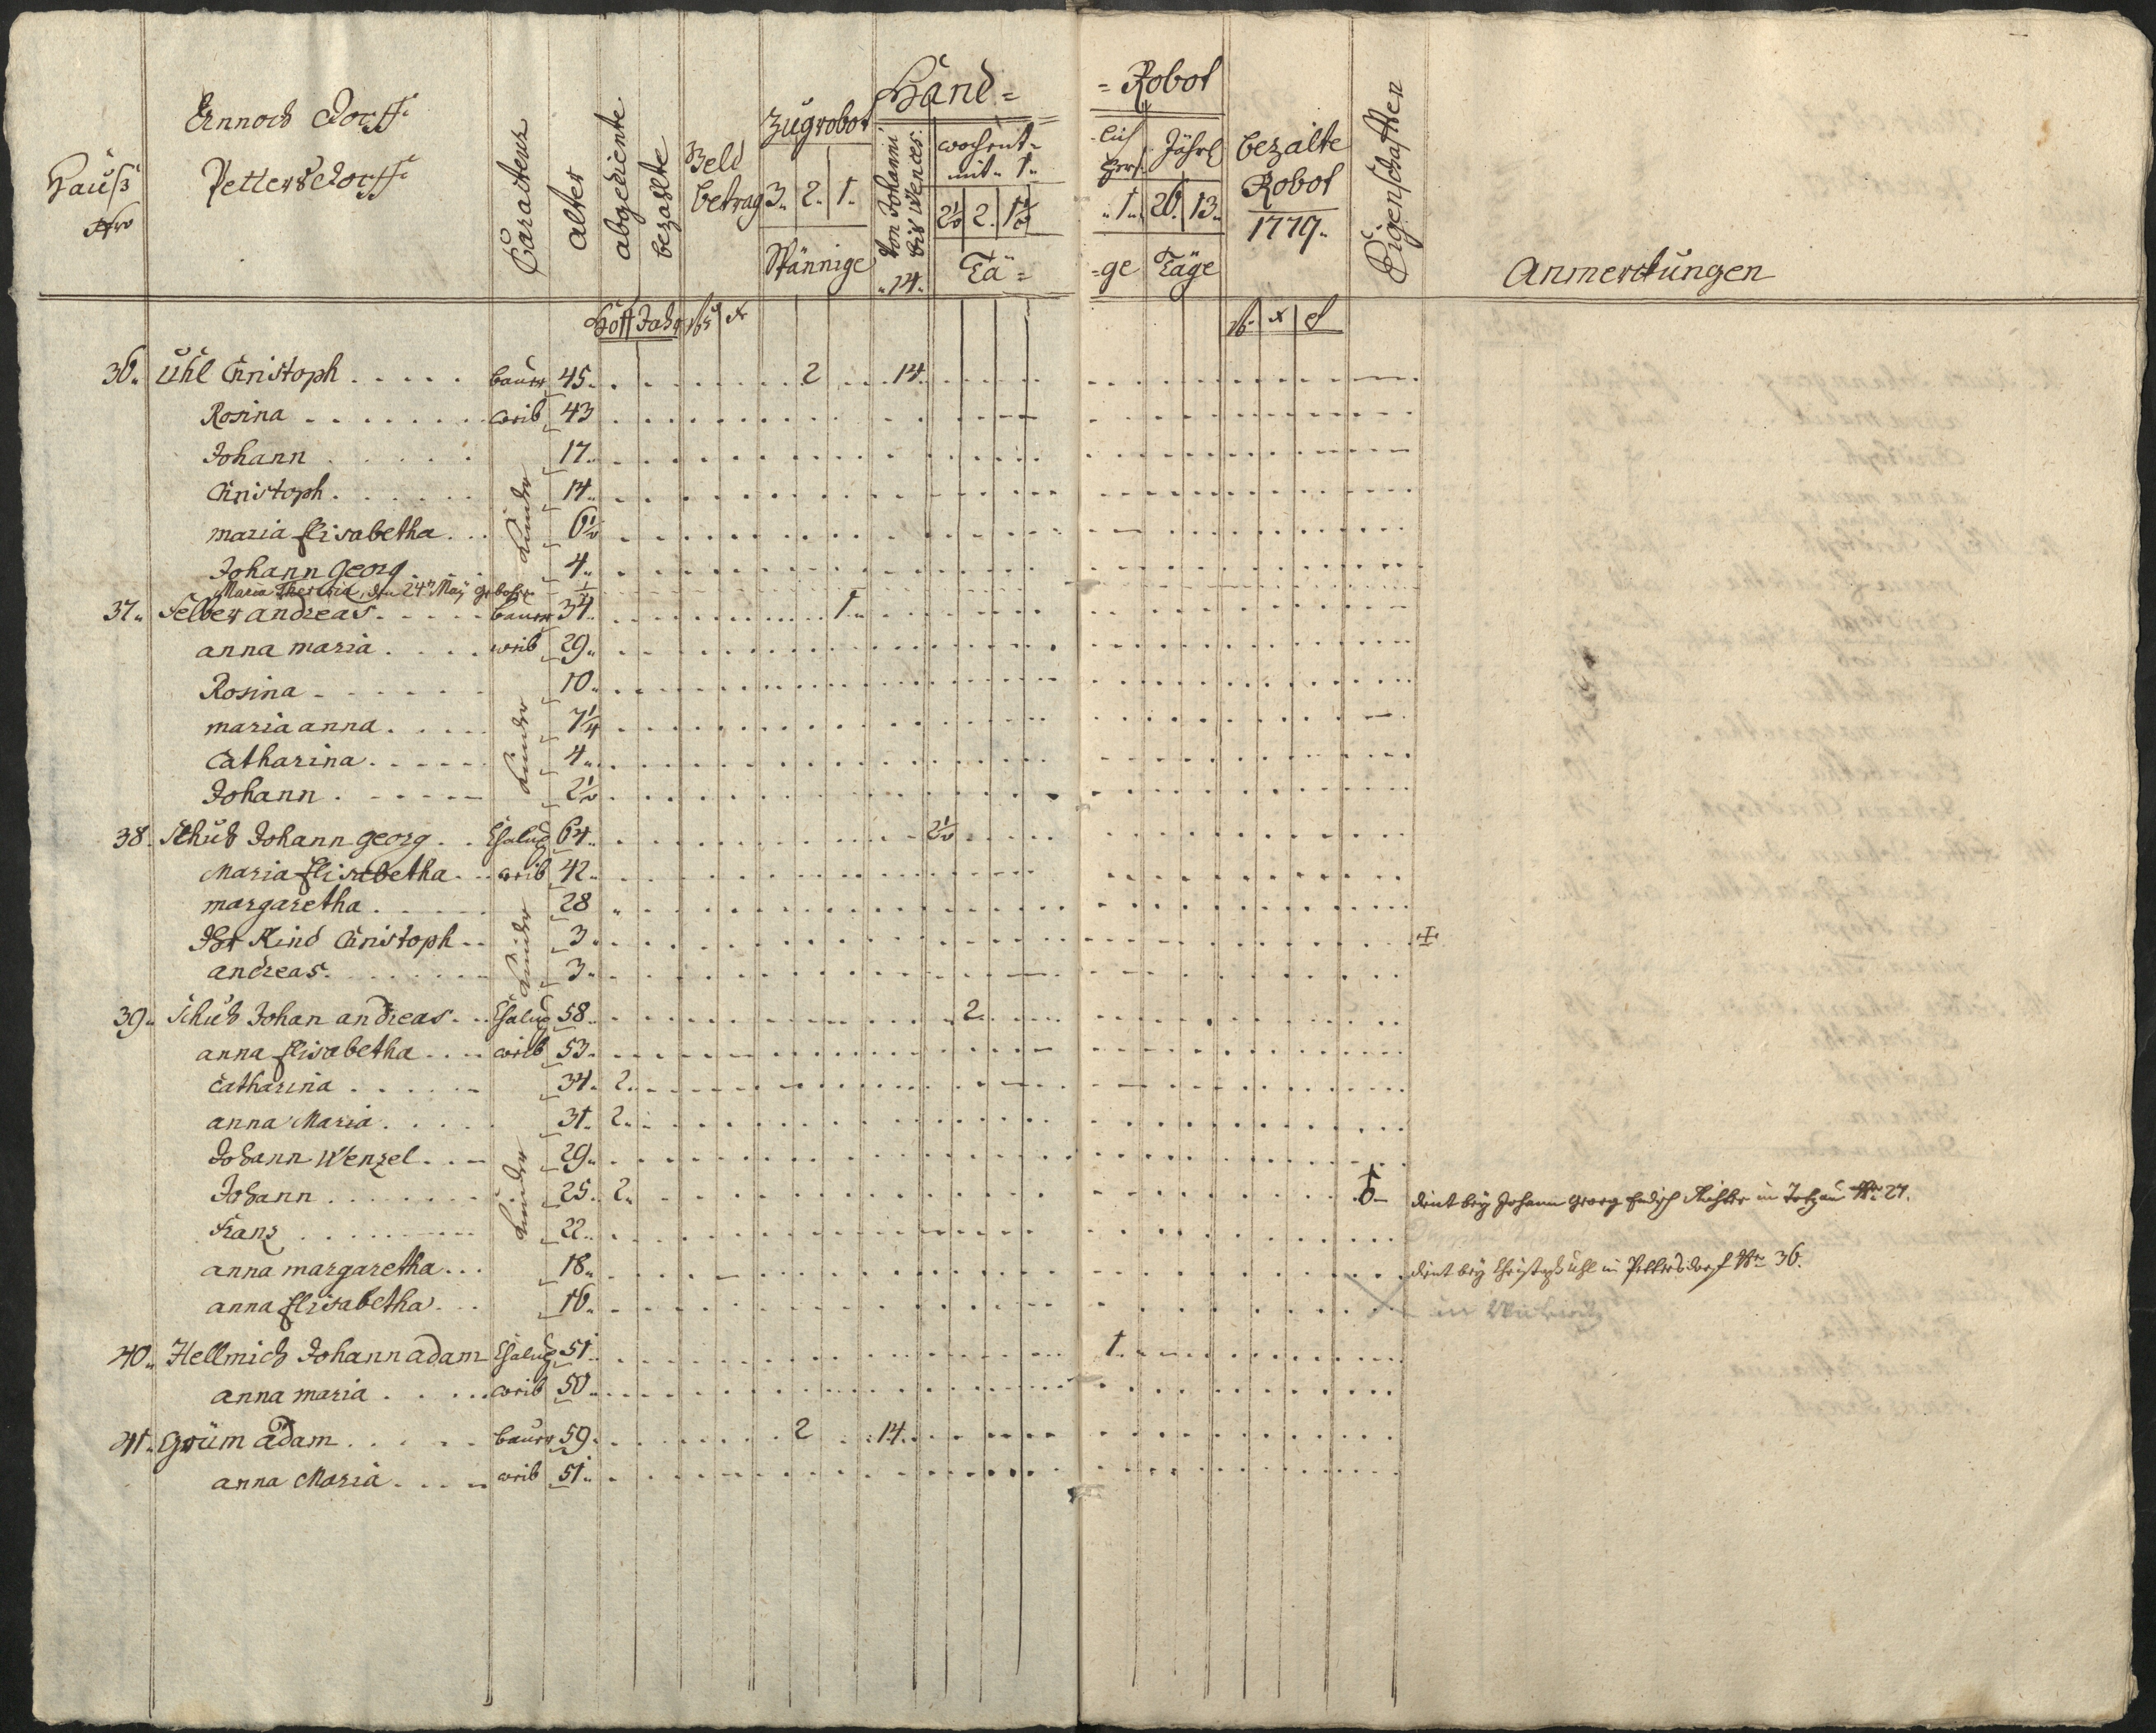 Hauß
Nro
Ennoch Dorff
Pettersdorff
Caracterr
alter
abgediente
bezahlte
Geld
betrag
Zugrobot
3. 2. 1.
Spännige
Hand=
von Johanni
bis Wences:
14.
wochent=
mit 1.
2½ 2. 1½
Tä=
=Robot
lich
Jährl
1. 26. 13.
=ge Täge
bezalte
Robot
1779.
Eigenschafften
Anmerckungen
Hoff Jahr fl x
fl x d
36. Uhl Christoph Bauer 45. 2 14.
Rosina weib 43
Johann 17.
Christoph 14.
maria Elisabetha 6½
Johann Georg 4.
Kinder
Maria Theresia, den 24t May gebohren
37. Felber andreas Bauer 34. 1.
anna maria weib 29.
Rosina 10.
maria anna 7¼
Catharina 4.
Johann 2½
Kinder
38. Schuh Johann georg Chalup 64. 2½
Maria Elisabetha weib 42.
margaretha 28
Kind Christoph 3.
andreas 3.
Kinder
39. Schuh Johan andreas Chalup 58. 2.
anna Elisabetha weib 53.
Catharina 34. 2.
anna Maria 31. 2.
Johann Wenzel 29.
Johann 25. 2. dient bey Johann Georg Richter in Nro 27.
Franz 22.
anna margaretha 18. dient bey Christoph Uhl in Pettersdorf Nro 36.
anna Elisabetha 16. in
Kinder
40. Hellmich Johann adam Chalup 51. 1.
anna maria weib 50.
41. Grüm adam Bauer 59. 2 14.
anna Maria weib 51.